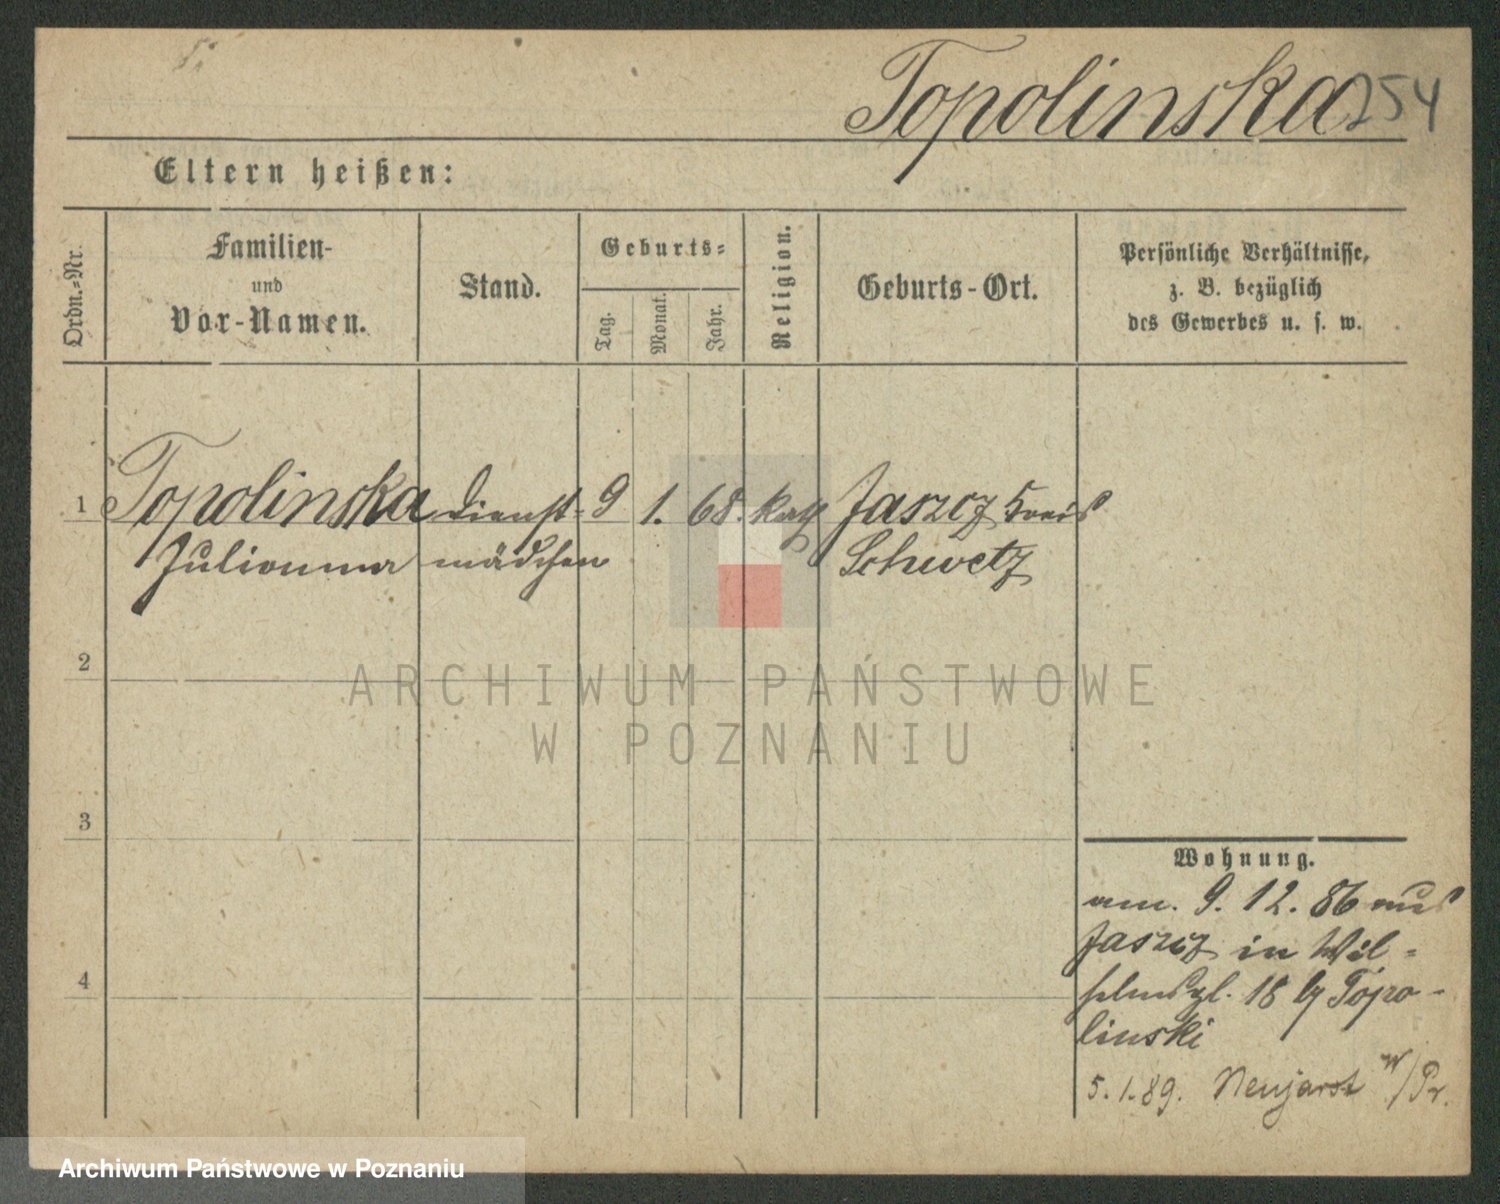 Topolinska 254
Eltern heißen:
Ordn.-Nr.
Familien-
und
Vor-Namen.
Stand.
Geburts-
Tag.
Monat.
Jahr.
Religion.
Geburts-Ort.
Persönliche Verhältnisse,
z. B. bezüglich
des Gewerbes u. s. w.
1 Topolinska Dienst- 9 1. 68. kath Jaszcz Kreis
Julianna mädchen Schwetz
2
ARCHIWUM PAŃSTWOWE
W POZNANIU
3
4
Wohnung.
am. 9. 12. 86 aus
Jaszcz in Wil-
helmspl. 18 b/ Topo-
linski
5. 1. 89. /Pr.
Archiwum Państwowe w Poznaniu